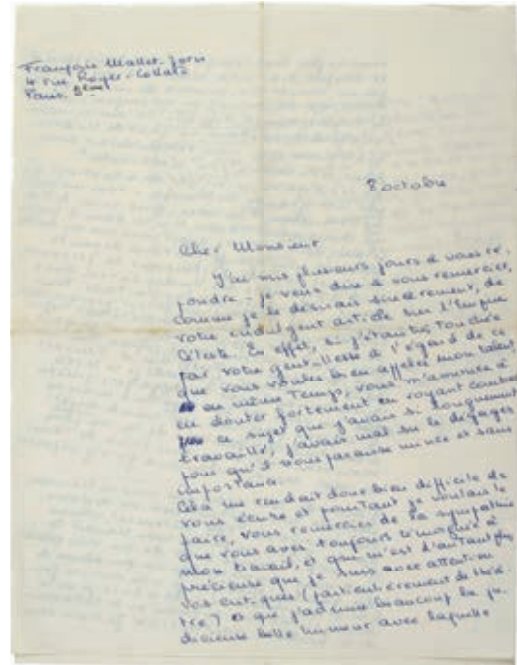 Françoise Mallet-Joris
4 rue Royer-Collard
Paris 5ème
8 octobre
Cher Monsieur
J'ai mis plusieurs jours à vous ré-
pondre - je veux dire à vous remercier,
comme je le désirais sincèrement, de
votre indulgent article sur l'Empire
Céleste. En effet, si j'étais très touchée
par votre gentillesse à l'égard de ce
que vous voulez bien appeler mon talent,
en même temps, vous m'ameniez à
en douter fortement en voyant combien
ce sujet que j'avais si longuement
travaillé, j'avais mal su le dégager
pour qu'il vous paraisse mince et sans
importance.
Cela me rendait donc bien difficile de
vous écrire et pourtant je voulais le
faire, vous remercier de la sympathie
que vous avez toujours témoignée à
mon travail, et qui m'est d'autant plus
précieuse que je suis avec attention
vos critiques (particulièrement de théâ-
tre) et que j'admire beaucoup la ju-
dicieuse belle humeur avec laquelle